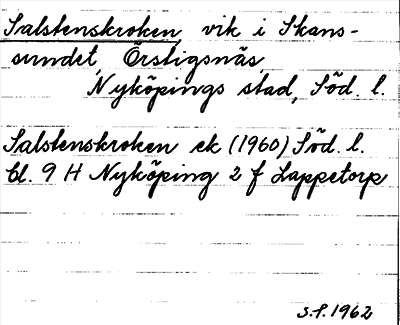 Salstenskroken, vik i Skans-
sundet, Örstigsnäs,
Nyköpings stad, Söd. l.
Salstenskroken ek (1960) Söd. l.
bl. 9 H Nyköping 2 f Lappetorp
S.F. 1962